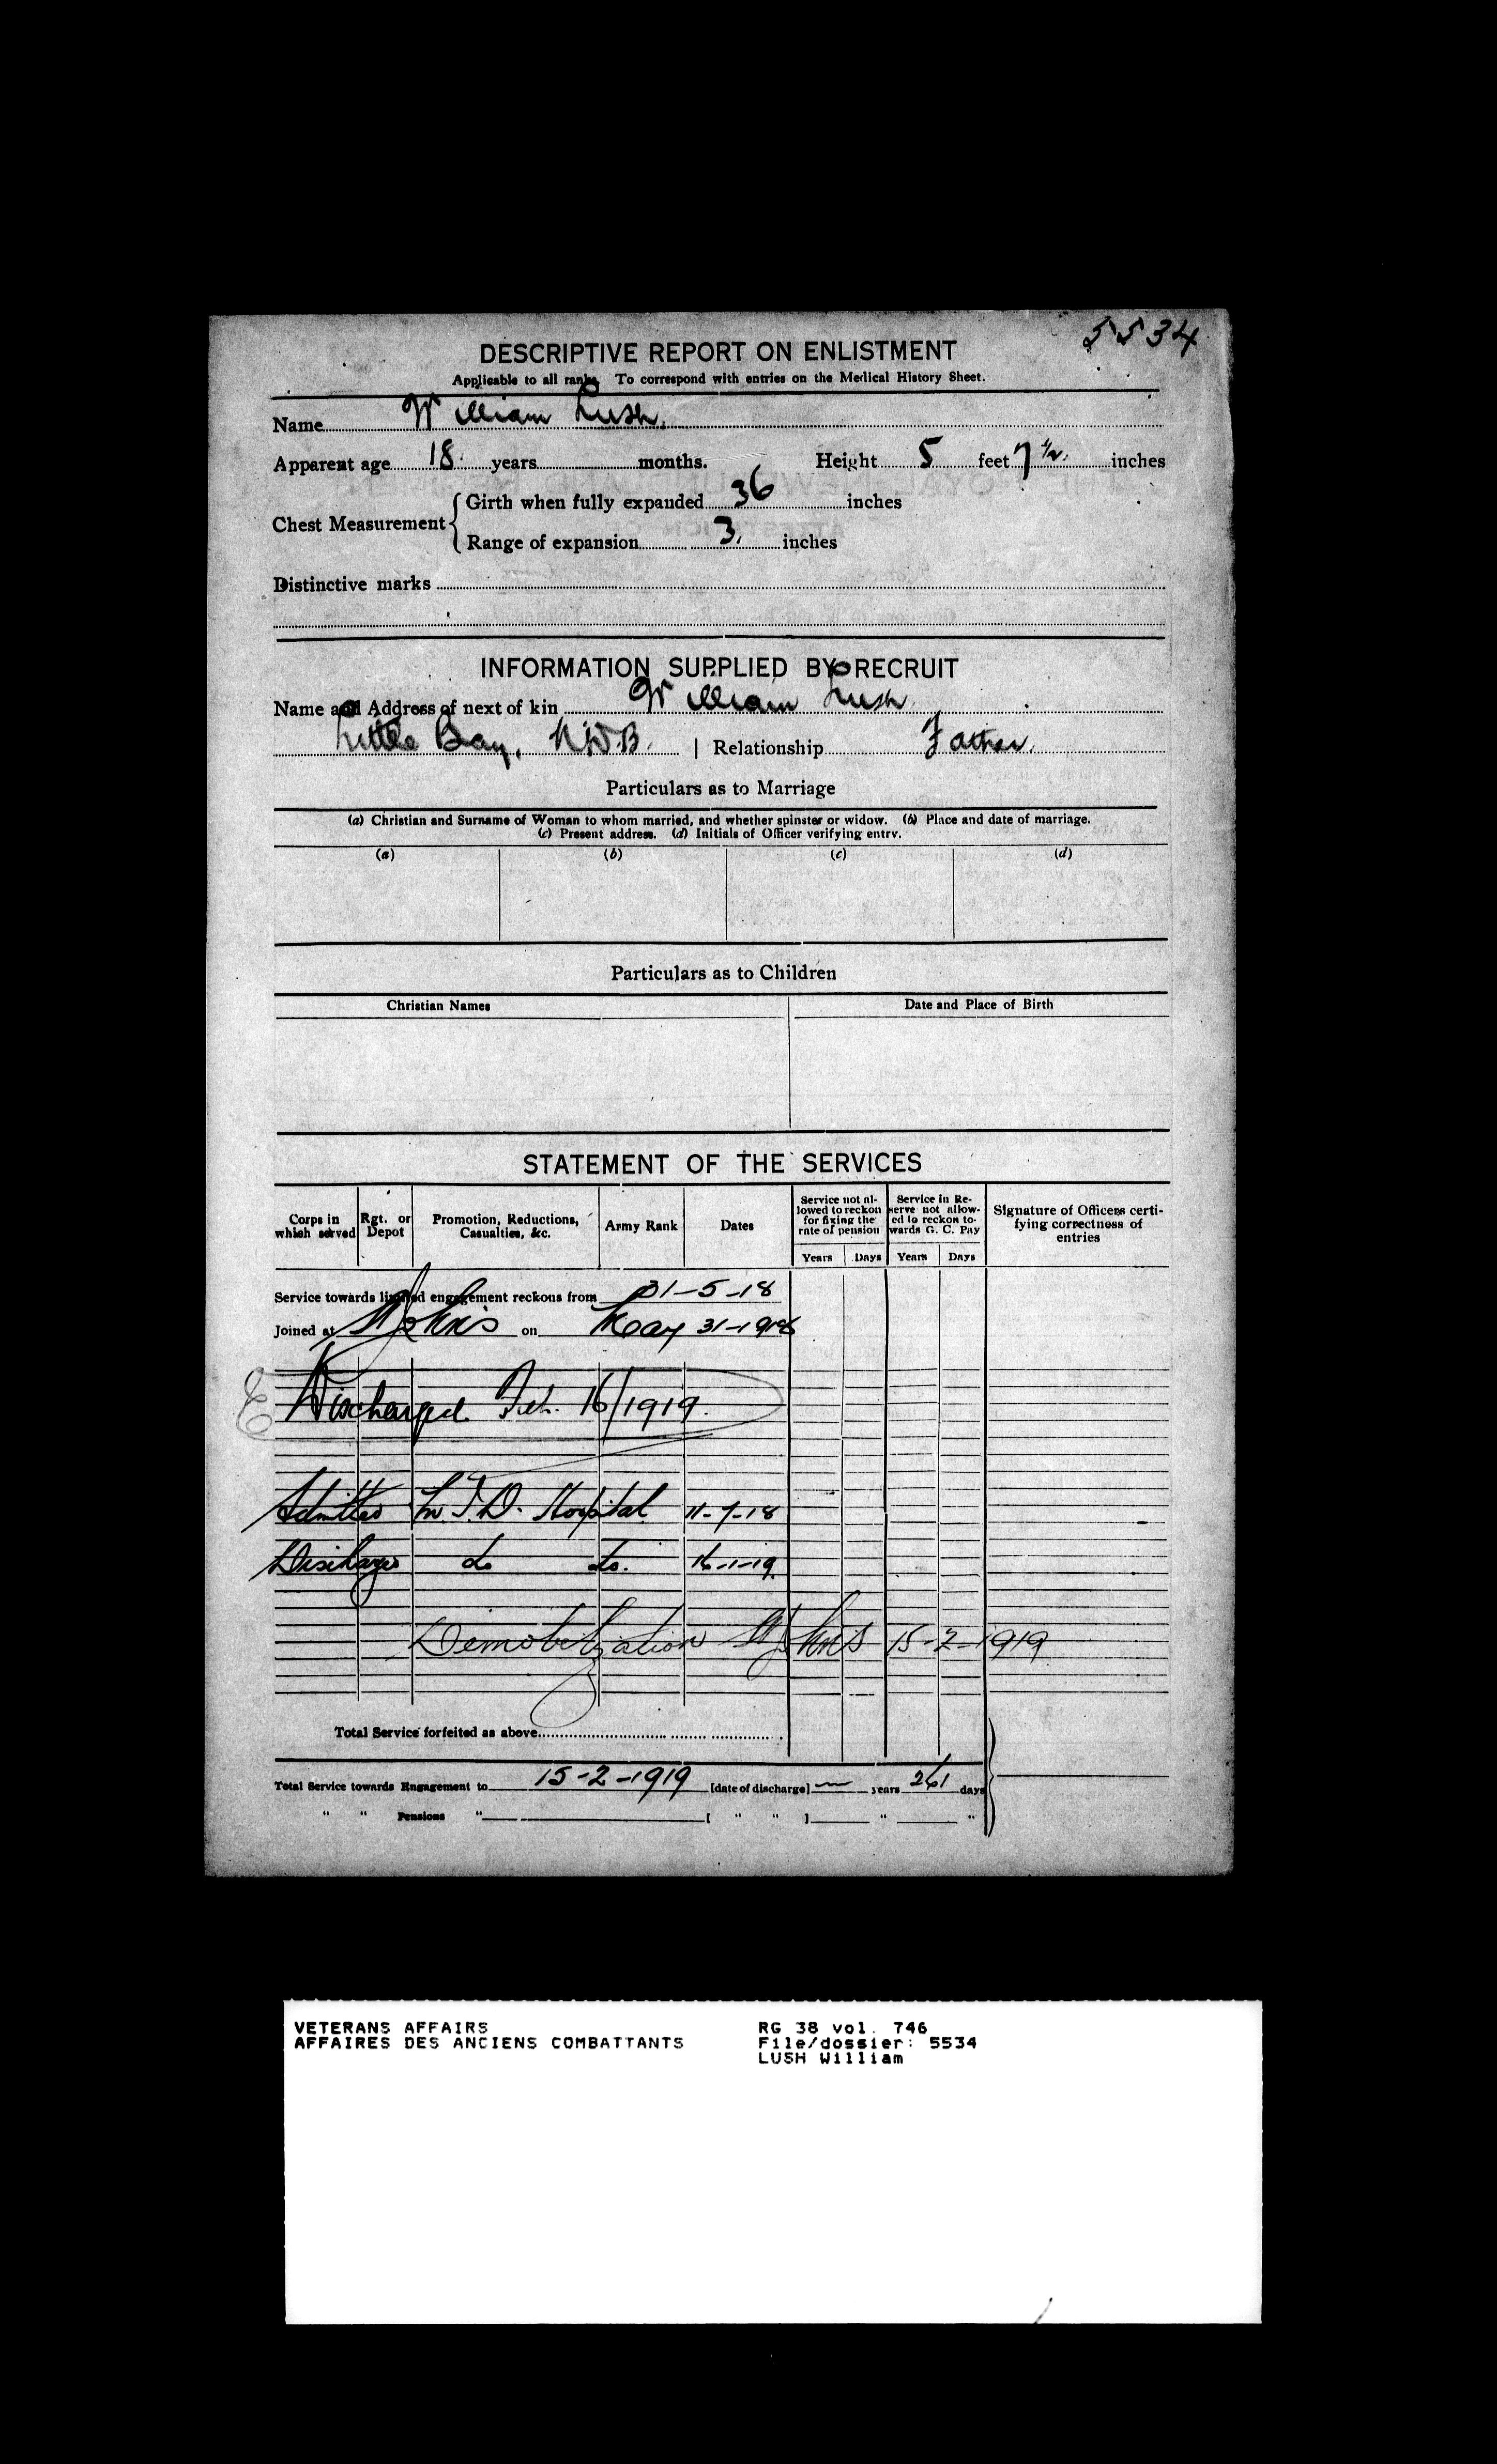 5534
DESCRIPTIVE REPORT ON ENLISTMENT
Applicable to all ranks. To correspond with entries on the Medical History Sheet.
Name William Lush.
Apparent age 18 years months. Height 5 feet 7 1/2 inches
Chest Measurement { Girth when fully expanded 36 inches
Range of expansion 3. inches
Distinctive marks
INFORMATION SUPPLIED BY RECRUIT
Name and Address of next of kin William Lush
Little Bay, N.D.B. | Relationship Father.
Particulars as to Marriage
(a) Christian and Surname of Woman to whom married, and whether spinster or widow. (b) Place and date of marriage.
(c) Present address. (d) Initials of Officer verifying entry.
(a) (b) (c) (d)
Particulars as to Children
Christian Names Date and Place of Birth
STATEMENT OF THE SERVICES
Corps in which served Rgt. or Depot Promotion, Reductions, Casualties, &c. Army Rank Dates Service not allowed to reckon for fixing the rate of pension Service in Reserve not allowed to reckon towards G. C. Pay Signature of Officers certifying correctness of entries
Years Days Years Days
Service towards limited engagement reckons from 31-5-18
Joined at St Johns on May 31-1918
Discharged Feb. 16/1919.
Admitted Hospital 11-7-18
Discharge do do. 16-1-19
Demobilization St Johns 15-2-1919
Total Service forfeited as above
Total Service towards Engagement to 15-2-1919 [date of discharge] — years 261 days
" " Pensions " [ " " ] " "
VETERANS AFFAIRS RG 38 vol. 746
AFFAIRES DES ANCIENS COMBATTANTS File/dossier: 5534
LUSH William